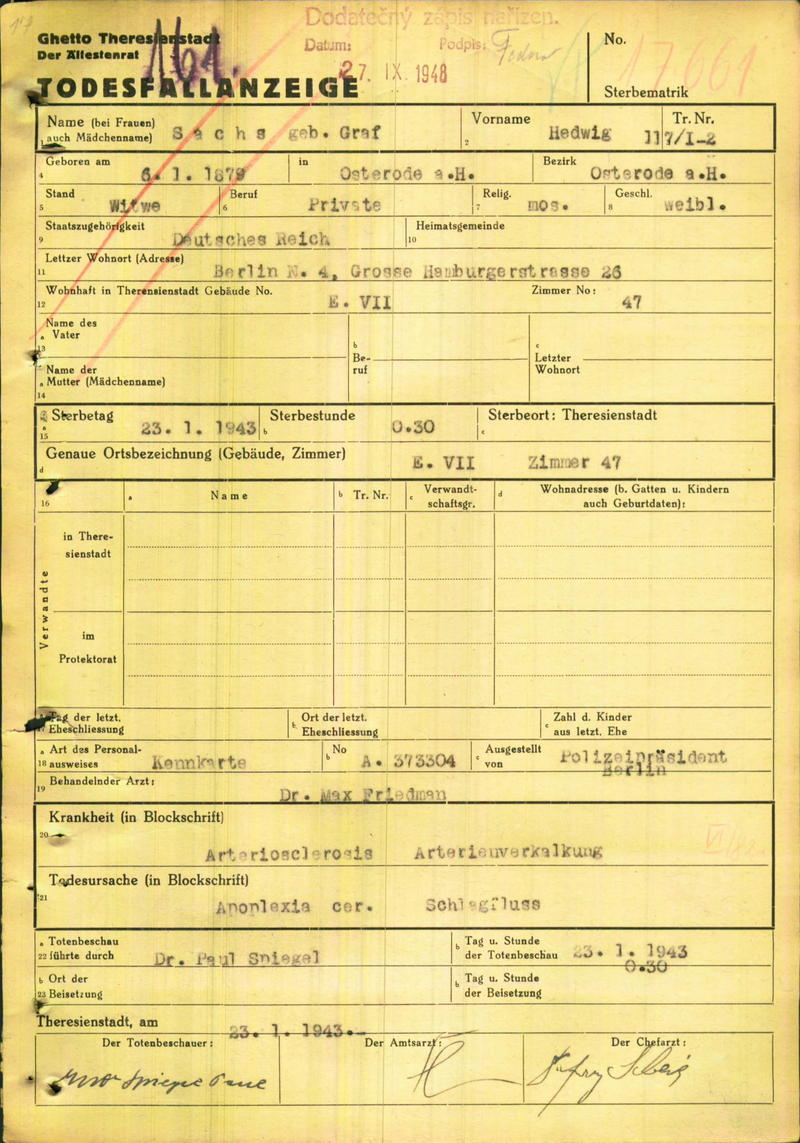 Dodatečný zápis nařízen.
Ghetto Theresienstadt
Der Ältestenrat
Datum: 27. IX. 1948
Podpis:
No. 17661
TODESFALLANZEIGE
Sterbematrik
Name (bei Frauen) auch Mädchenname) Sachs geb. Graf
Vorname Hedwig
2
Tr. Nr. 117/I-2
Geboren am 6. 1. 1879
4
in Osterode a.H.
Bezirk Osterode a.H.
Stand Witwe
5
Beruf Private
6
Relig. mos.
7
Geschl. weibl.
8
Staatszugehörigkeit Deutsches Reich
9
Heimatsgemeinde
10
Lettzer Wohnort (Adresse)
11 Berlin N. 4, Grosse Hamburgerstrasse 26
Wohnhaft in Theresienstadt Gebäude No. E. VII
12
Zimmer No: 47
Name des
a Vater
13
b
Be-
ruf
c
Letzter
Wohnort
Name der
a Mutter (Mädchenname)
14
Sterbetag 23. 1. 1943
a
15
Sterbestunde 0.30
b
Sterbeort: Theresienstadt
c
Genaue Ortsbezeichnung (Gebäude, Zimmer) E. VII Zimmer 47
d
16
a Name
b Tr. Nr.
c Verwandt-
schaftsgr.
d Wohnadresse (b. Gatten u. Kindern
auch Geburtdaten):
Verwandte
in There-
sienstadt
im
Protektorat
Tag der letzt.
Eheschliessung
b Ort der letzt.
Eheschliessung
c Zahl d. Kinder
aus letzt. Ehe
a Art des Personal-
18 ausweises Kennkarte
No A. 373304
b
Ausgestellt
c von Polizeipräsident
Berlin
Behandelnder Arzt:
19 Dr. Max Friedman
Krankheit (in Blockschrift)
20
Arteriosclerosis Arterienverkalkung
Todesursache (in Blockschrift)
21
Apoplexia cer. Schlagfluss
a Totenbeschau
22 führte durch Dr. Paul Spiegel
b Tag u. Stunde
der Totenbeschau 23. 1. 1943
0.30
b Ort der
23 Beisetzung
b Tag u. Stunde
der Beisetzung
Theresienstadt, am 23. 1. 1943.-
Der Totenbeschauer:
Der Amtsarzt:
Der Chefarzt: